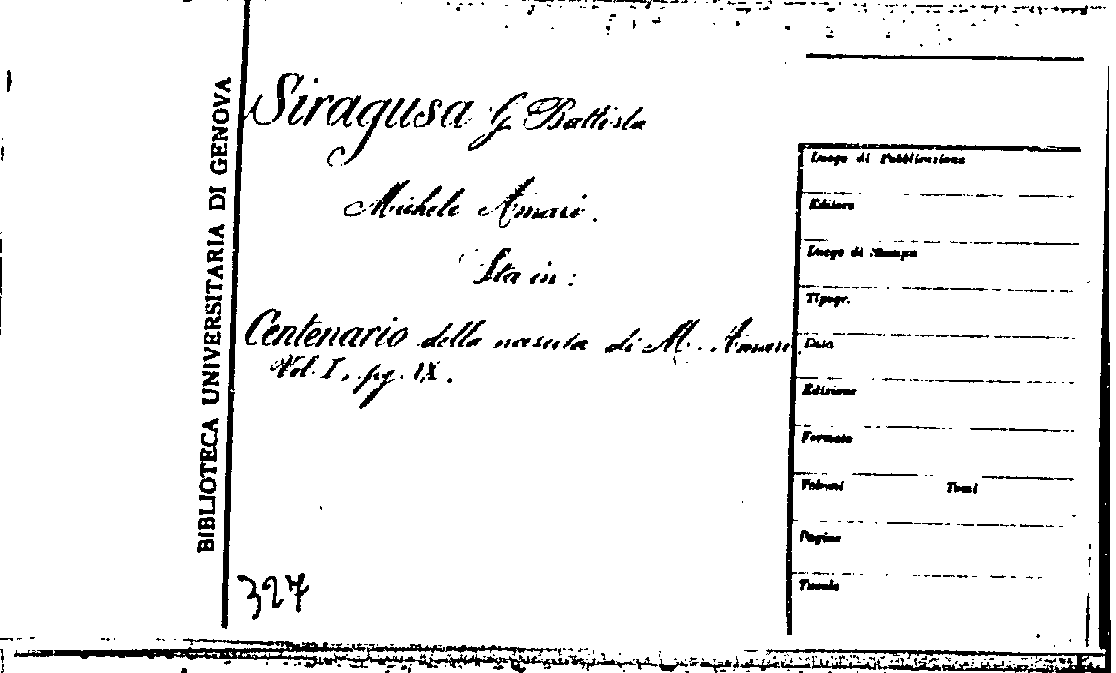 BIBLIOTECA UNIVERSITARIA DI GENOVA
Siragusa G. Battista
Michele Amari.
Sta in:
Centenario della nascita di M. Amari.
Vol. I, pg. IX.
327
Luogo di Pubblicazione
Editore
Luogo di Stampa
Tipogr.
Data
Edizione
Formato
Volumi Tomi
Pagine
Tavole